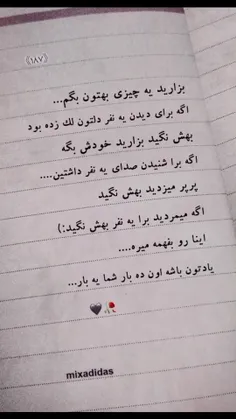 (۱۸۷)
بزارید یه چیزی بهتون بگم...
اگه برای دیدن یه نفر دلتون لك زده بود
بهش نگید بزارید خودش بگه
اگه برا شنیدن صدای یه نفر داشتین....
پرپر میزدید بهش نگید
اگه میمردید برا یه نفر بهش نگید:)
اینا رو بفهمه میره....
یادتون باشه اون ده بار شما یه بار...
🖤🥀
mixadidas